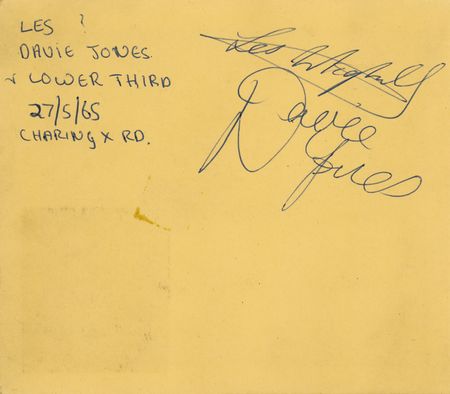 LES ?
DAVIE JONES.
+ LOWER THIRD
27/5/65
CHARING X RD.
Les
Davie
Jones